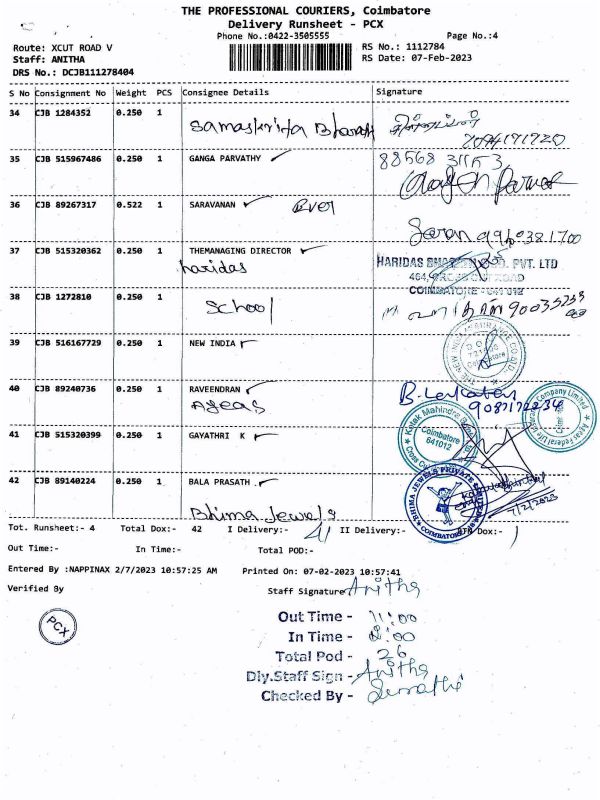 THE PROFESSIONAL COURIERS, Coimbatore
Delivery Runsheet - PCX
Phone No.:0422-3505555 Page No.:4
Route: XCUT ROAD V RS No.: 1112784
Staff: ANITHA RS Date: 07-Feb-2023
DRS No.: DCJB111278404
S No Consignment No Weight PCS Consignee Details Signature
34 CJB 1284352 0.250 1
Samaskrita Bharati
35 CJB 515967486 0.250 1 GANGA PARVATHY
36 CJB 89267317 0.522 1 SARAVANAN
Saran 9960381700
37 CJB 515320362 0.250 1 THEMANAGING DIRECTOR
haridas HARIDAS PVT. LTD
COIMBATORE - 641 012
38 CJB 1272810 0.250 1
School
39 CJB 516167729 0.250 1 NEW INDIA
40 CJB 89240736 0.250 1 RAVEENDRAN
Ageas
41 CJB 515320399 0.250 1 GAYATHRI K
Kotak Mahindra
Coimbatore
641012
42 CJB 89140224 0.250 1 BALA PRASATH
Bhima Jewels
BHIMA JEWELS PRIVATE
COIMBATORE
7/2/2023
Tot. Runsheet:- 4 Total Dox:- 42 I Delivery:- 41 II Delivery:- Dox:- 1
Out Time:- In Time:- Total POD:-
Entered By :NAPPINAX 2/7/2023 10:57:25 AM Printed On: 07-02-2023 10:57:41
Verified By Staff Signature Anitha
PCX
Out Time - 11:00
In Time - 2:00
Total Pod - 26
Dly.Staff Sign - Anitha
Checked By -